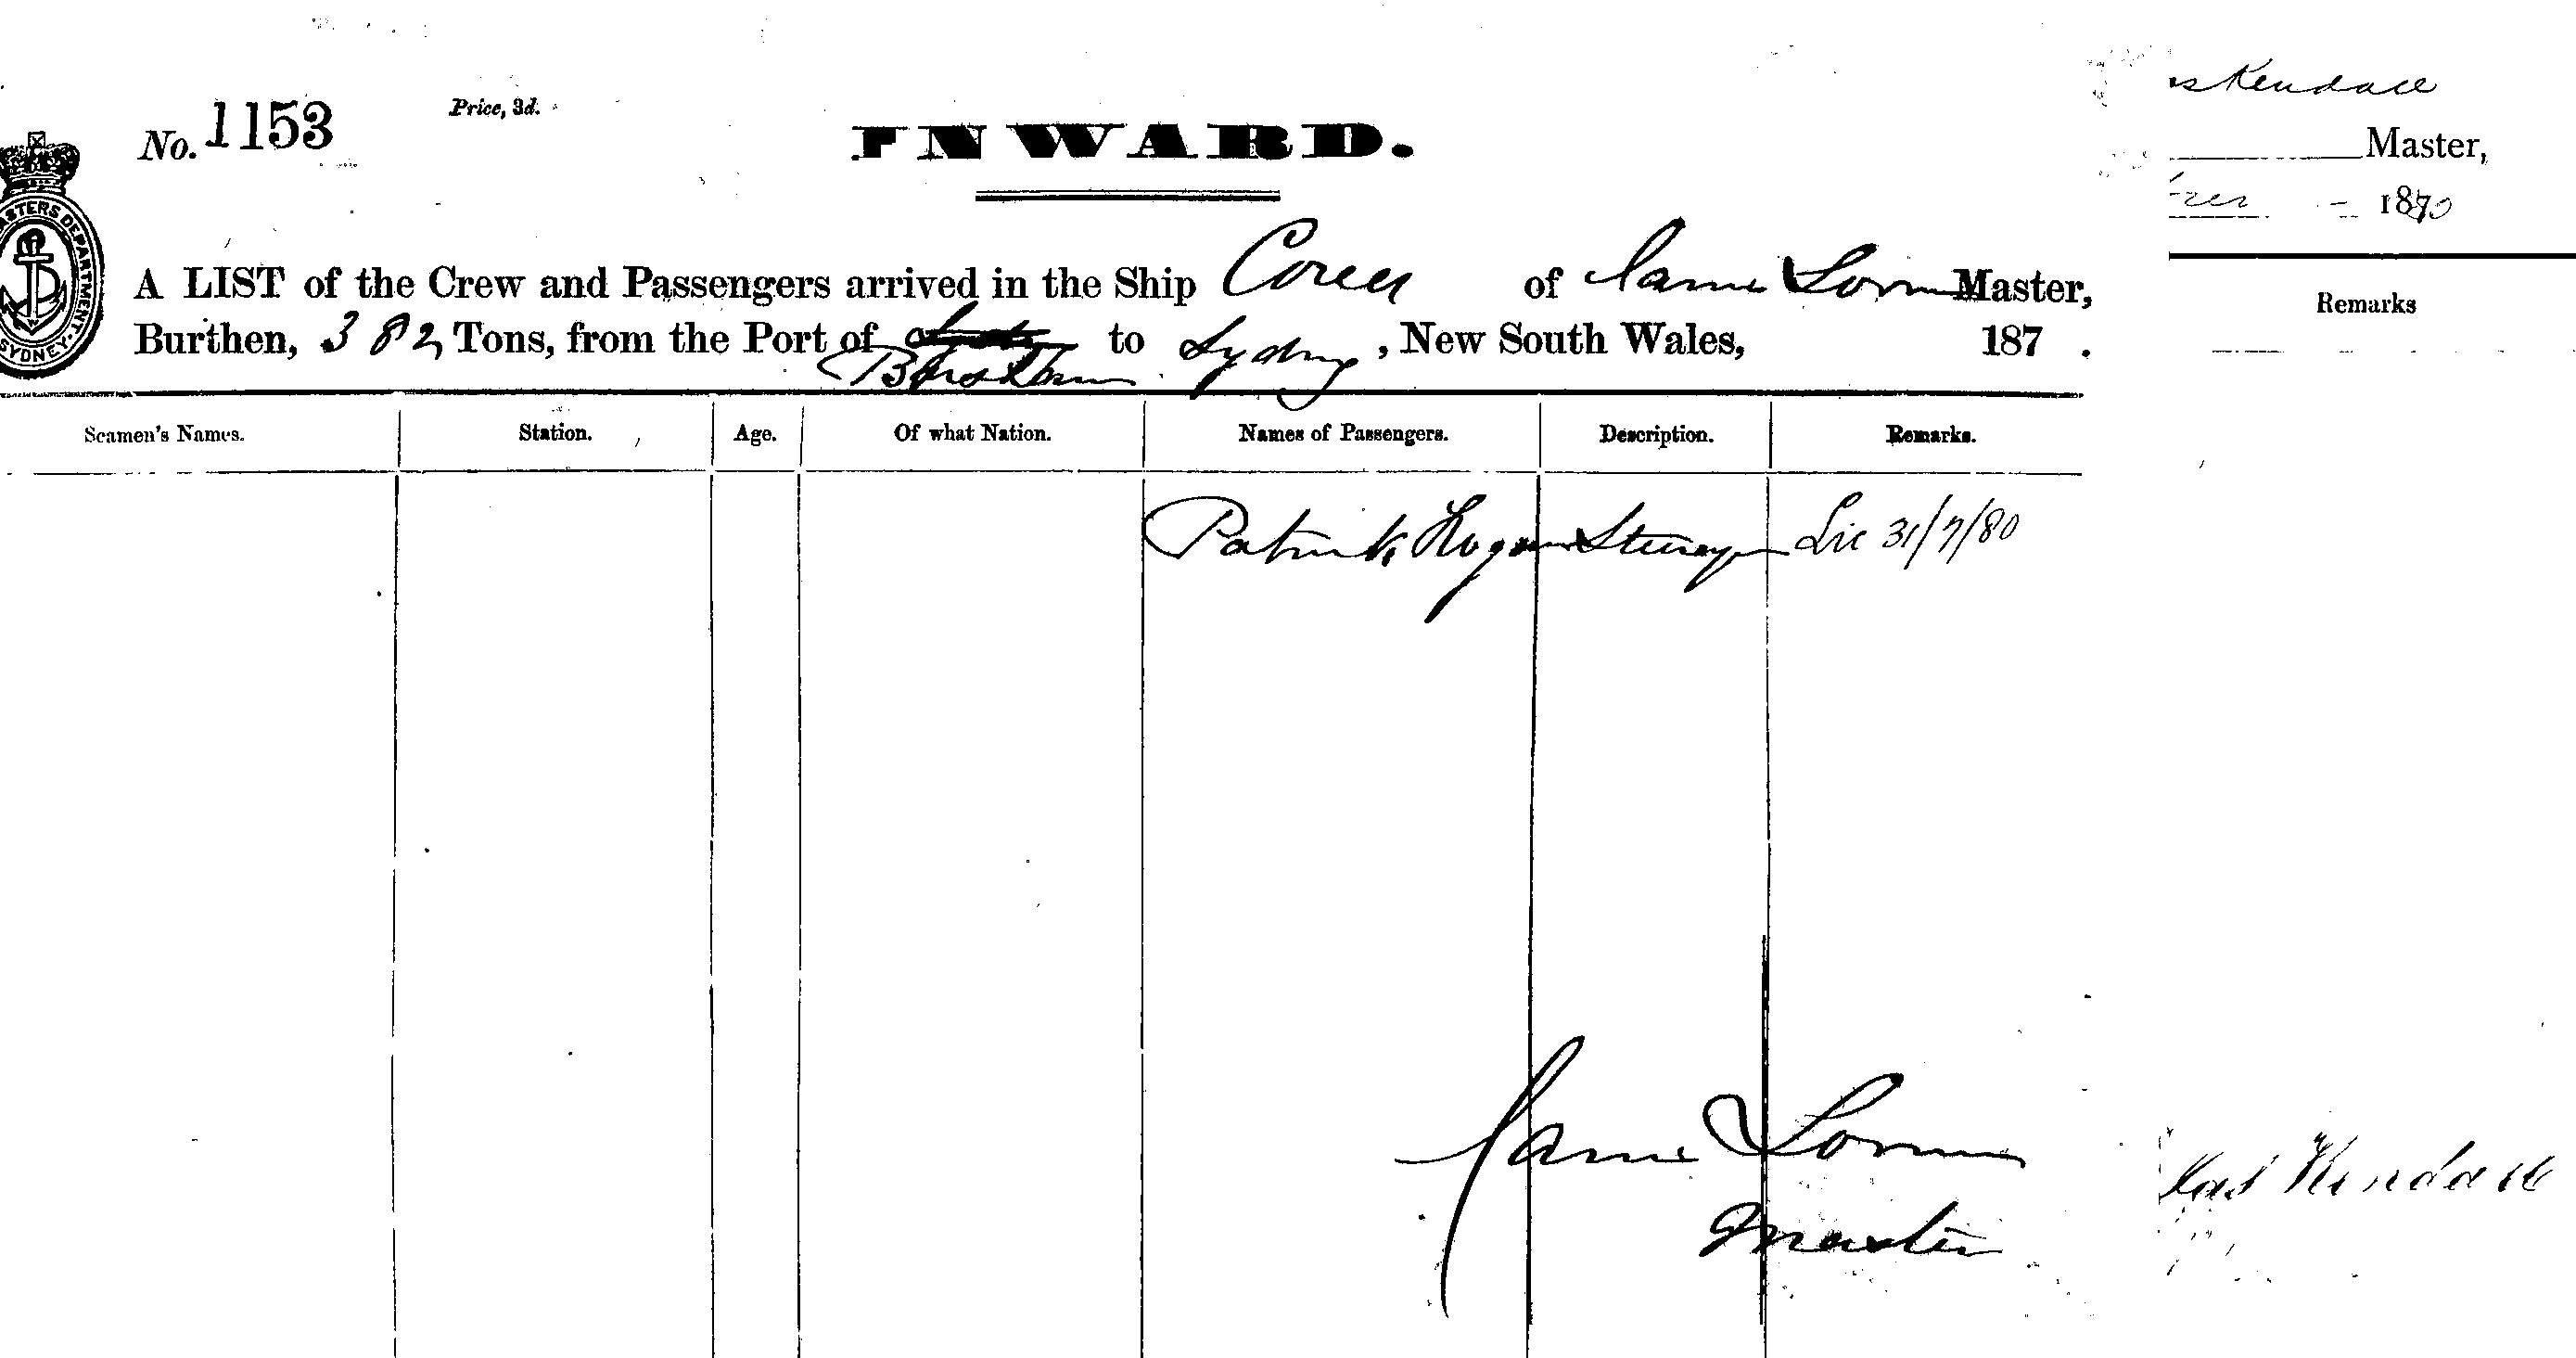 No. 1153
Price, 3d.
INWARD.
A LIST of the Crew and Passengers arrived in the Ship Corea of James Master,
Burthen, 382 Tons, from the Port of to Sydney, New South Wales, 187 .
Seamen's Names. Station. Age. Of what Nation. Names of Passengers. Description. Remarks.
Patrick Hogan Steerage 31/7/80
James
Master
MASTERS DEPARTMENT. SYDNEY.
Kendall
Master,
1870
Remarks
Jas Kendall